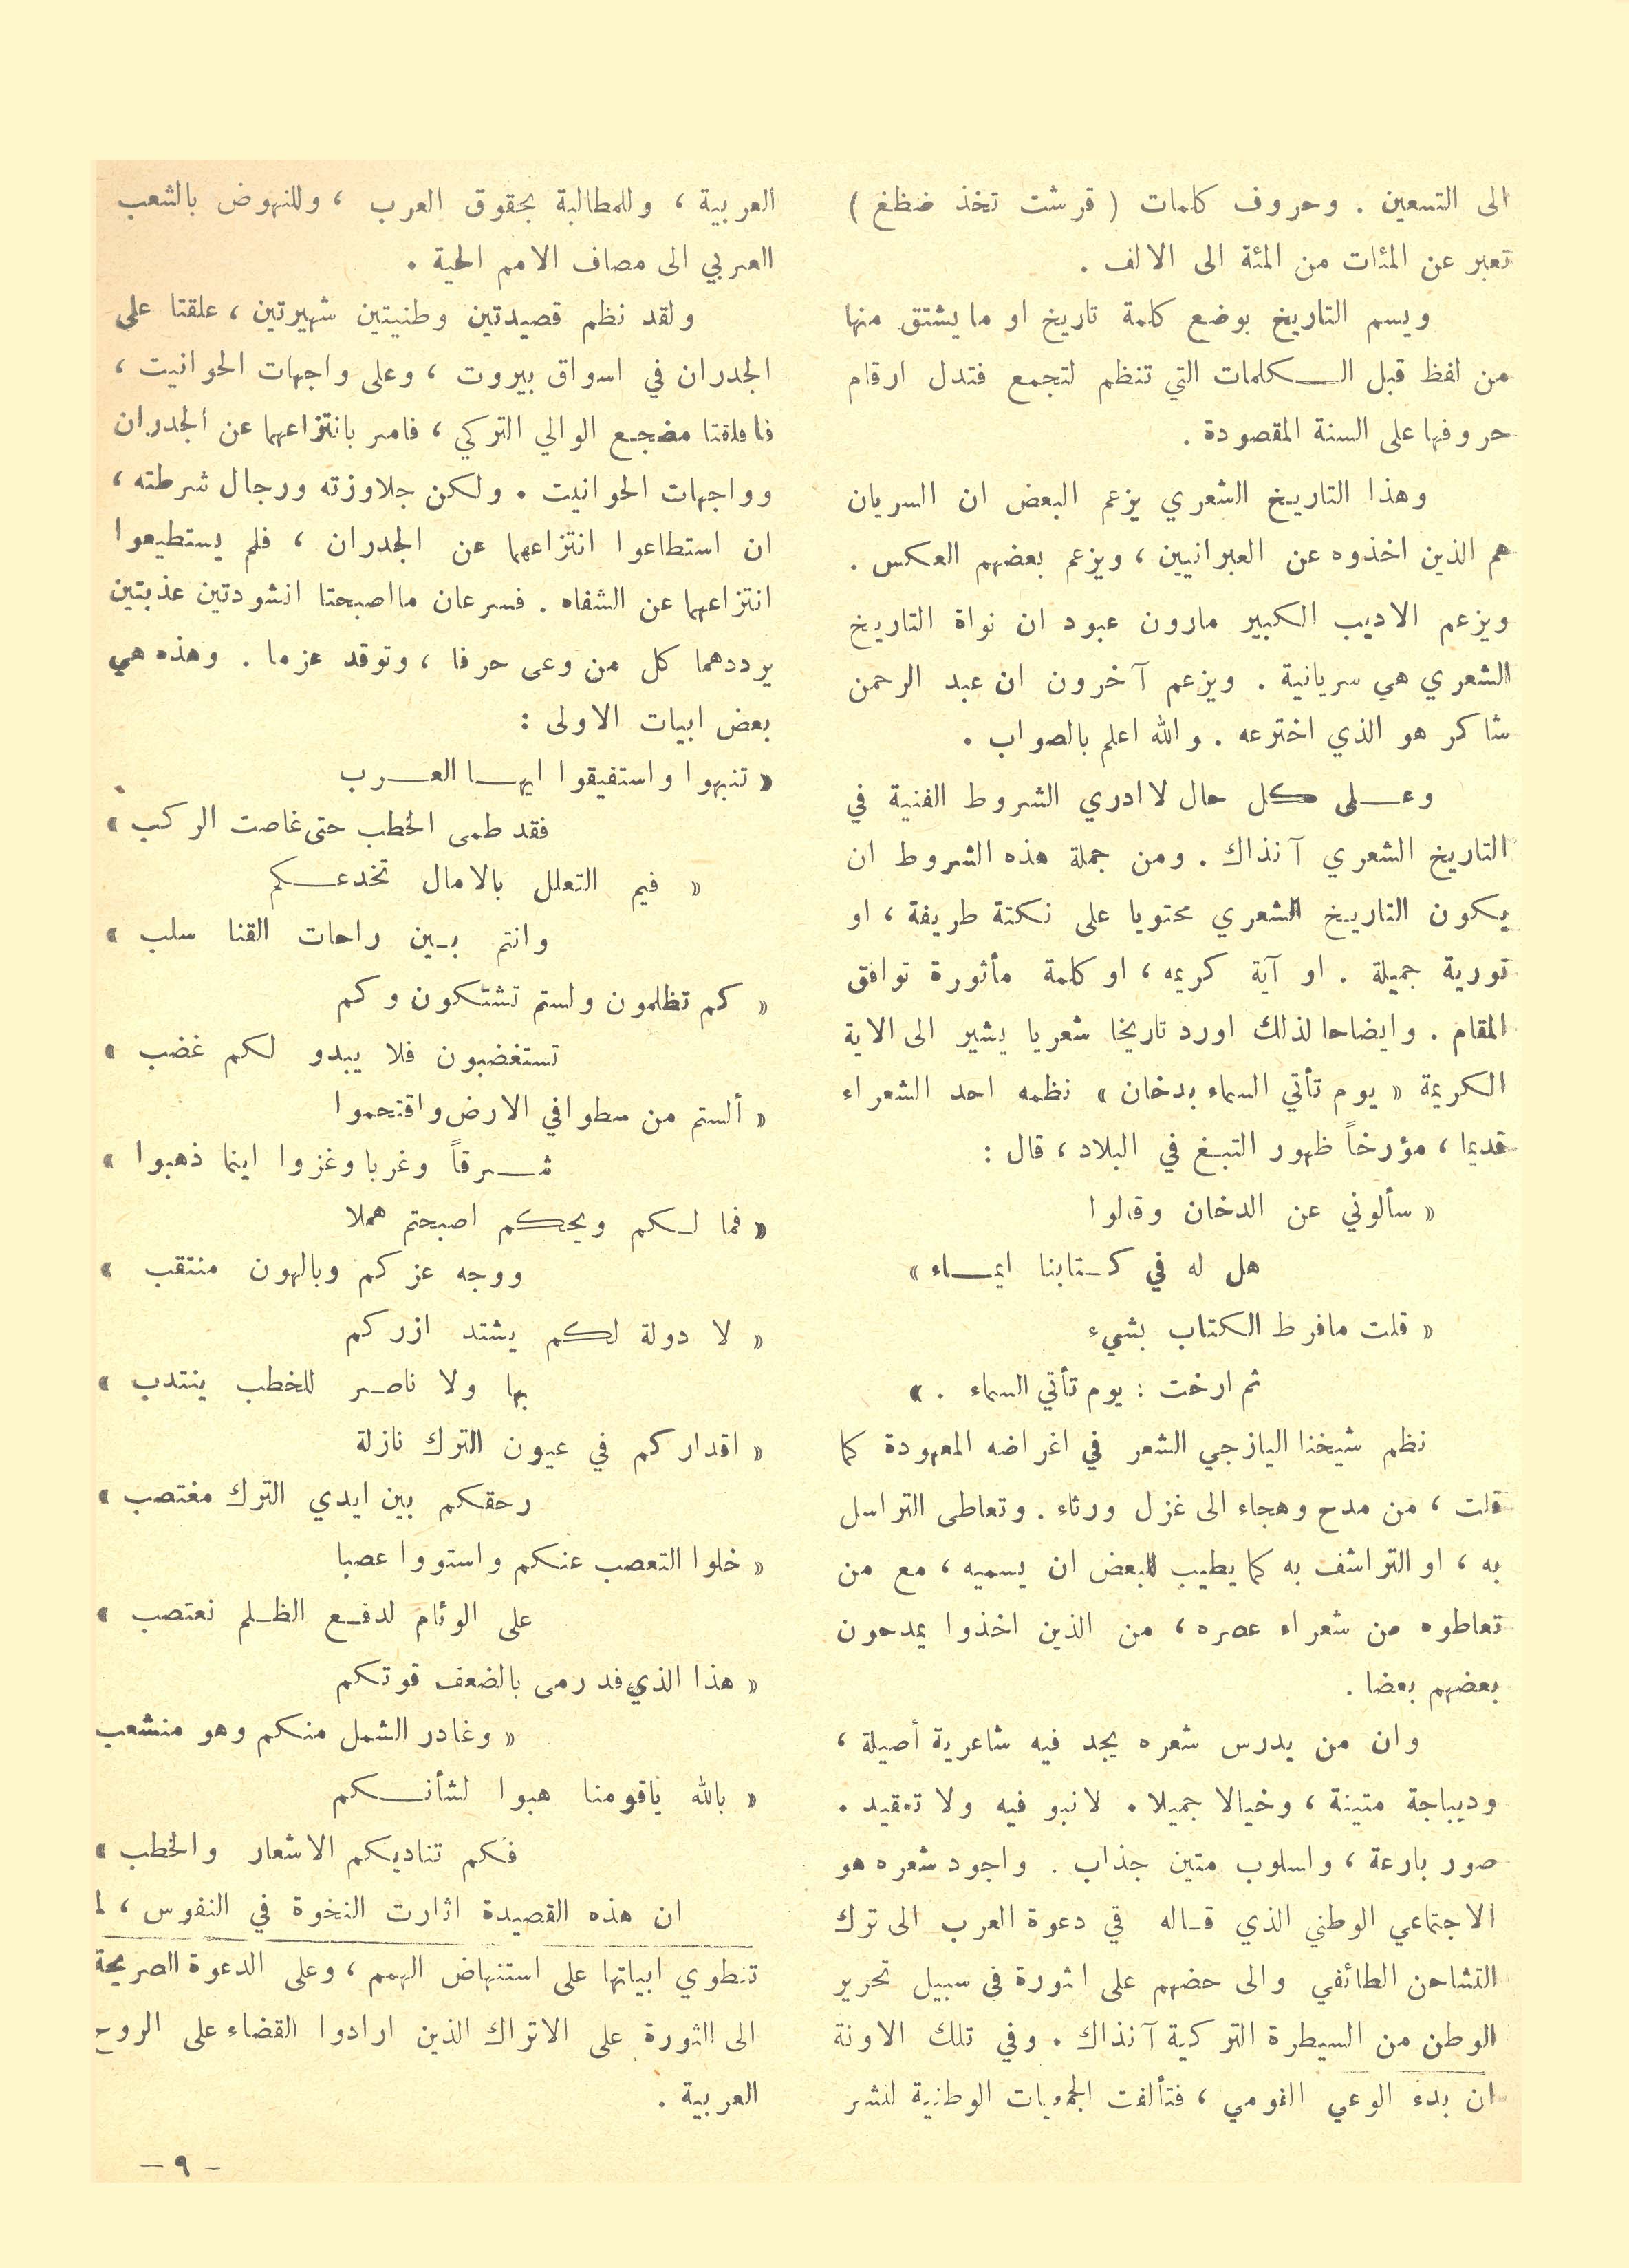 الى التسعين . وحروف كلمات ( قرشت تخذ ضظغ )
تعبر عن المئات من المئة الى الالف .
ويسم التاريخ بوضع كلمة تاريخ او ما يشتق منها
من لفظ قبل الكلمات التي تنظم لتجمع فتدل ارقام
حروفها على السنة المقصودة .
وهذا التاريخ الشعري يزعم البعض ان السريان
هم الذين اخذوه عن العبرانيين ، ويزعم بعضهم العكس .
ويزعم الاديب الكبير مارون عبود ان نواة التاريخ
الشعري هي سريانية . ويزعم آخرون ان عبد الرحمن
شاكر هو الذي اخترعه . والله اعلم بالصواب .
وعلى كل حال لا ادري الشروط الفنية في
التاريخ الشعري آنذاك . ومن جملة هذه الشروط ان
يكون التاريخ الشعري محتويا على نكتة طريفة ، او
تورية جميلة . او آية كريمه ، او كلمة مأثورة توافق
المقام . وايضاحا لذلك اورد تاريخا شعريا يشير الى الاية
الكريمة « يوم تأتي السماء بدخان » نظمه احد الشعراء
قديما ، مؤرخاً ظهور التبغ في البلاد ، قال :
« سألوني عن الدخان وقالوا
هل له في كتابنا ايماء »
« قلت مافرط الكتاب بشيء
ثم ارخت : يوم تأتي السماء . »
نظم شيخنا اليازجي الشعر في اغراضه المعهودة كما
قلت ، من مدح وهجاء الى غزل ورثاء . وتعاطى التراسل
به ، او التراشف به كما يطيب للبعض ان يسميه ، مع من
تعاطوه من شعراء عصره ، من الذين اخذوا يمدحون
بعضهم بعضا .
وان من يدرس شعره يجد فيه شاعرية أصيلة ،
وديباجة متينة ، وخيالا جميلا . لانبو فيه ولا تعقيد .
صور بارعة ، واسلوب متين جذاب . واجود شعره هو
الاجتماعي الوطني الذي قاله في دعوة العرب الى ترك
التشاحن الطائفي والى حضهم على اثورة في سبيل تحرير
الوطن من السيطرة التركية آنذاك . وفي تلك الاونة
ان بدء الوعي القومي ، فتألفت الجمعيات الوطنية لنشر
العربية ، وللمطالبة بحقوق العرب ، وللنهوض بالشعب
العربي الى مصاف الامم الحية .
ولقد نظم قصيدتين وطنيتين شهيرتين ، علقتا على
الجدران في اسواق بيروت ، وعلى واجهات الحوانيت ،
فاقلقتا مضجع الوالي التركي ، فامر بانتزاعهما عن الجدران
وواجهات الحوانيت . ولكن جلاوزته ورجال شرطته ،
ان استطاعوا انتزاعهما عن الجدران ، فلم يستطيعوا
انتزاعهما عن الشفاه . فسرعان مااصبحتا انشودتين عذبتين
يرددهما كل من وعى حرفا ، وتوقد عزما . وهذه هي
بعض ابيات الاولى :
« تنبهوا واستفيقوا ايها العرب
فقد طمى الخطب حتى غاصت الركب »
« فيم التعلل بالامال تخدعكم
وانتم بين راحات القنا سلب »
« كم تظلمون ولستم تشتكون وكم
تستغضبون فلا يبدو لكم غضب »
« ألستم من سطوا في الارض واقتحموا
شرقاً وغربا وغزوا اينما ذهبوا »
« فما لكم ويحكم اصبحتم هملا
ووجه عزكم وبالهون منتقب »
« لا دولة لكم يشتد ازركم
بها ولا ناصر للخطب ينتدب »
« اقداركم في عيون الترك نازلة
رحقكم بين ايدي الترك مغتصب »
« خلوا التعصب عنكم واستووا عصبا
على الوئام لدفع الظلم نعتصب »
« هذا الذي فد رمى بالضعف قوتكم
« وغادر الشمل منكم وهو منشعب
« بالله ياقومنا هبوا لشأنكم
فكم تناديكم الاشعار والخطب »
ان هذه القصيدة اثارت النخوة في النفوس ، لما
تنطوي ابياتها على استنهاض الهمم ، وعلى الدعوة الصريحة
الى الثورة على الاتراك الذين ارادوا القضاء على الروح
العربية .
- ٩ -